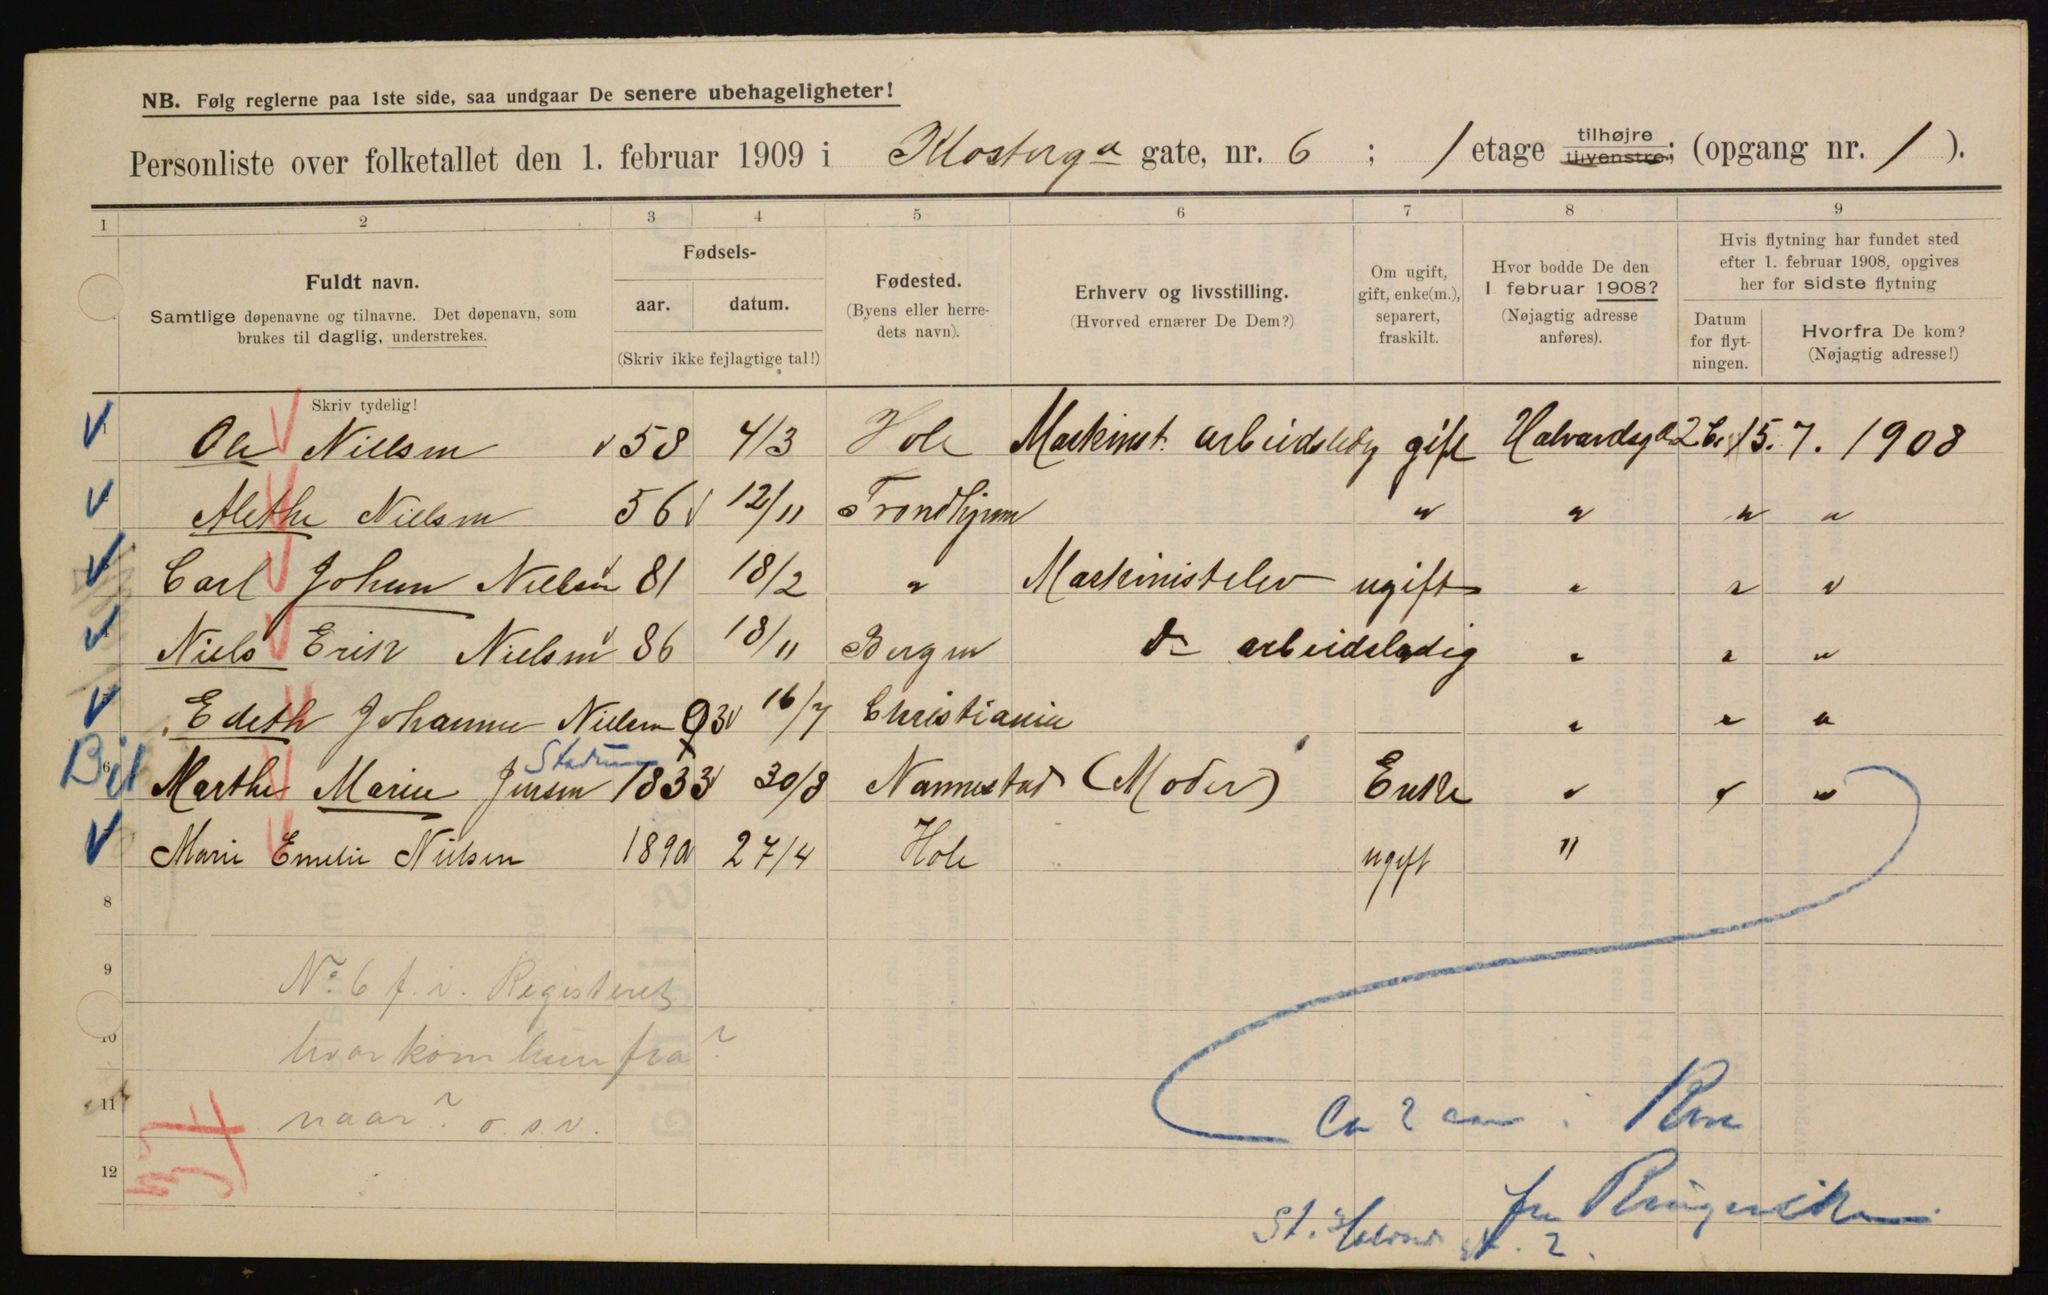 NB. Følg reglerne paa 1ste side, saa undgaar De senere ubehageligheter!
Personliste over folketallet den 1. februar 1909 i Klosterga gate, nr. 6 ; 1 etage tilhøjre tilvenstre; (opgang nr. 1 ).
1 2 3 4 5 6 7 8 9
Fuldt navn.
Samtlige døpenavne og tilnavne. Det døpenavn, som
brukes til daglig, understrekes.
Fødsels-
aar. datum.
(Skriv ikke fejlagtige tal!)
Fødested.
(Byens eller herre-
dets navn).
Erhverv og livsstilling.
(Hvorved ernærer De Dem?)
Om ugift,
gift, enke(m.),
separert,
fraskilt.
Hvor bodde De den
1 februar 1908?
(Nøjagtig adresse
anføres).
Hvis flytning har fundet sted
efter 1. februar 1908, opgives
her for sidste flytning
Datum
for flyt-
ningen.
Hvorfra De kom?
(Nøjagtig adresse!)
Skriv tydelig!
Ole Nielsen 58 4/3 Hole Maskinist arbeidsledig gift Halvardsgd 2 15.7. 1908
Alethe Nielsen 56 12/11 Trondhjem " " " "
Carl Johan Nielsen 81 18/2 " Maskinistelev ugift " " "
Niels Erik Nielsen 86 18/11 Bergen Do arbeidsledig " " "
Edeth Johanne Nielsen 93 16/7 Christiania " " "
Bil 6 Marthe Marie Jensen 1833 30/8 Nannestad (Moder) Enke " " "
Marie Emelie Nielsen 1890 27/4 Hole ugift "
8
9 No 6 f. i. Registeret
10 hvor kom hun fra?
11 naar? o.s.v.
Ca 2 aar i
12
fra Ringerike
St. Halvards gt. 2.